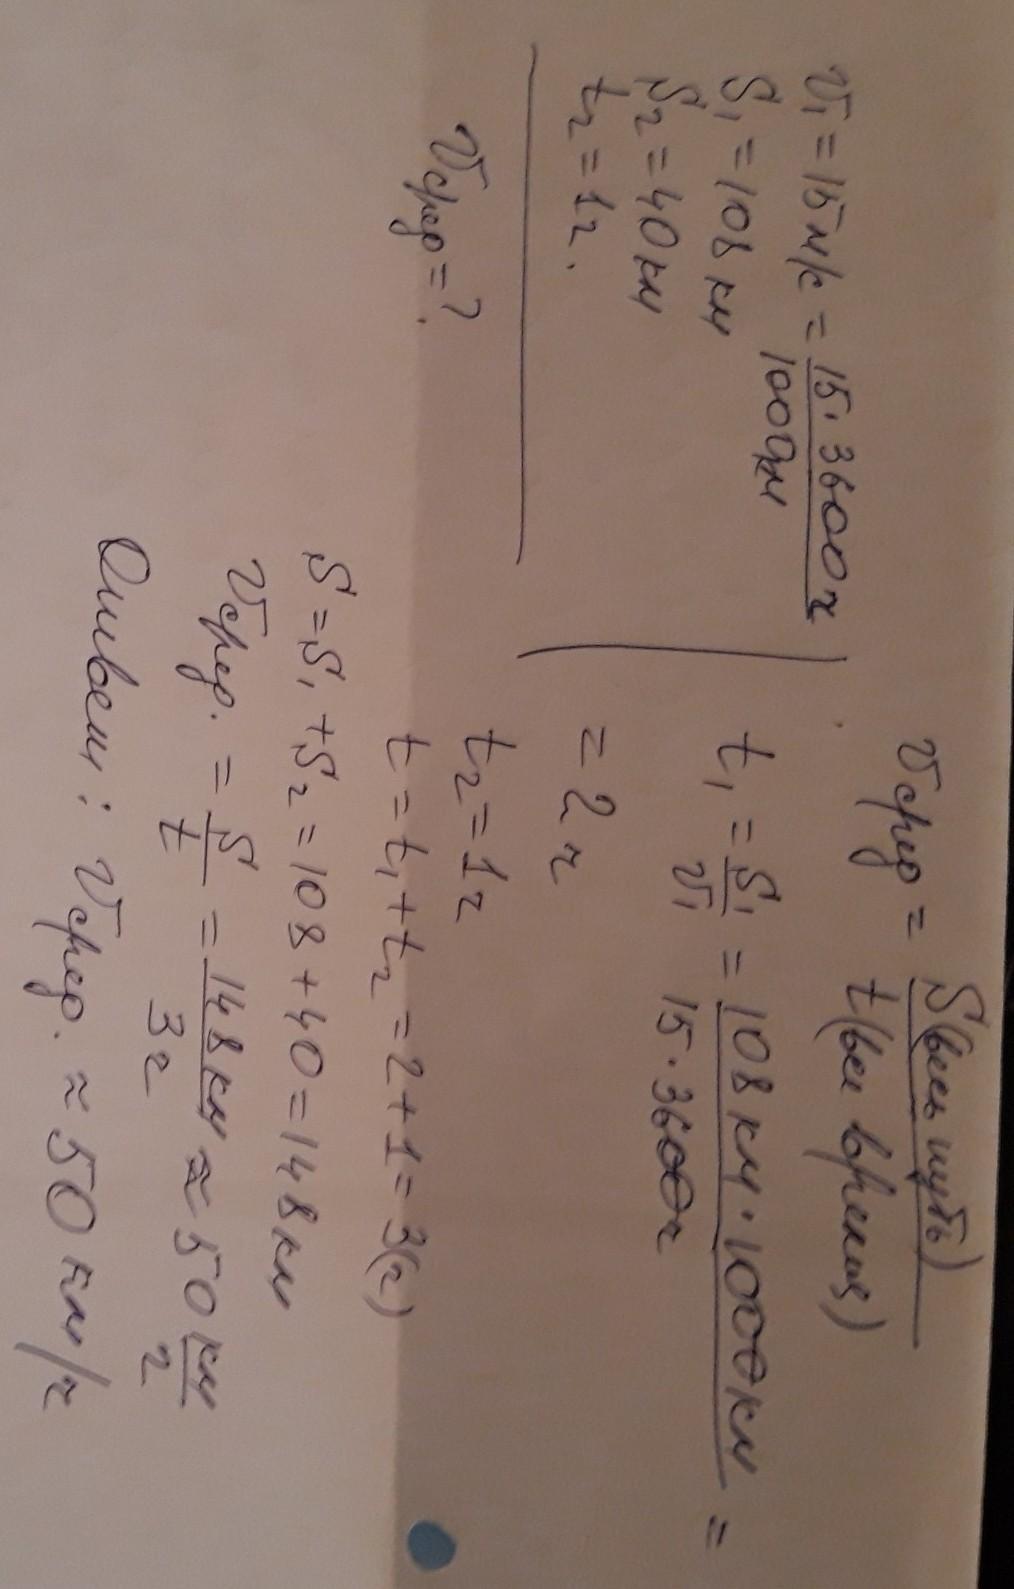 v₁ = 15 м/с = 15 · 3600ч / 1000км
S₁ = 108 км
S₂ = 40 км
t₂ = 1ч.
vсред = ?
vсред = S(весь путь) / t(все время)
t₁ = S₁ / v₁ = 108 км · 1000км / 15 · 3600ч =
= 2 ч
t₂ = 1ч
t = t₁ + t₂ = 2 + 1 = 3(ч)
S = S₁ + S₂ = 108 + 40 = 148 км
vсред. = S / t = 148 км / 3ч ≈ 50 км / ч
Ответ: vсред. ≈ 50 км/ч